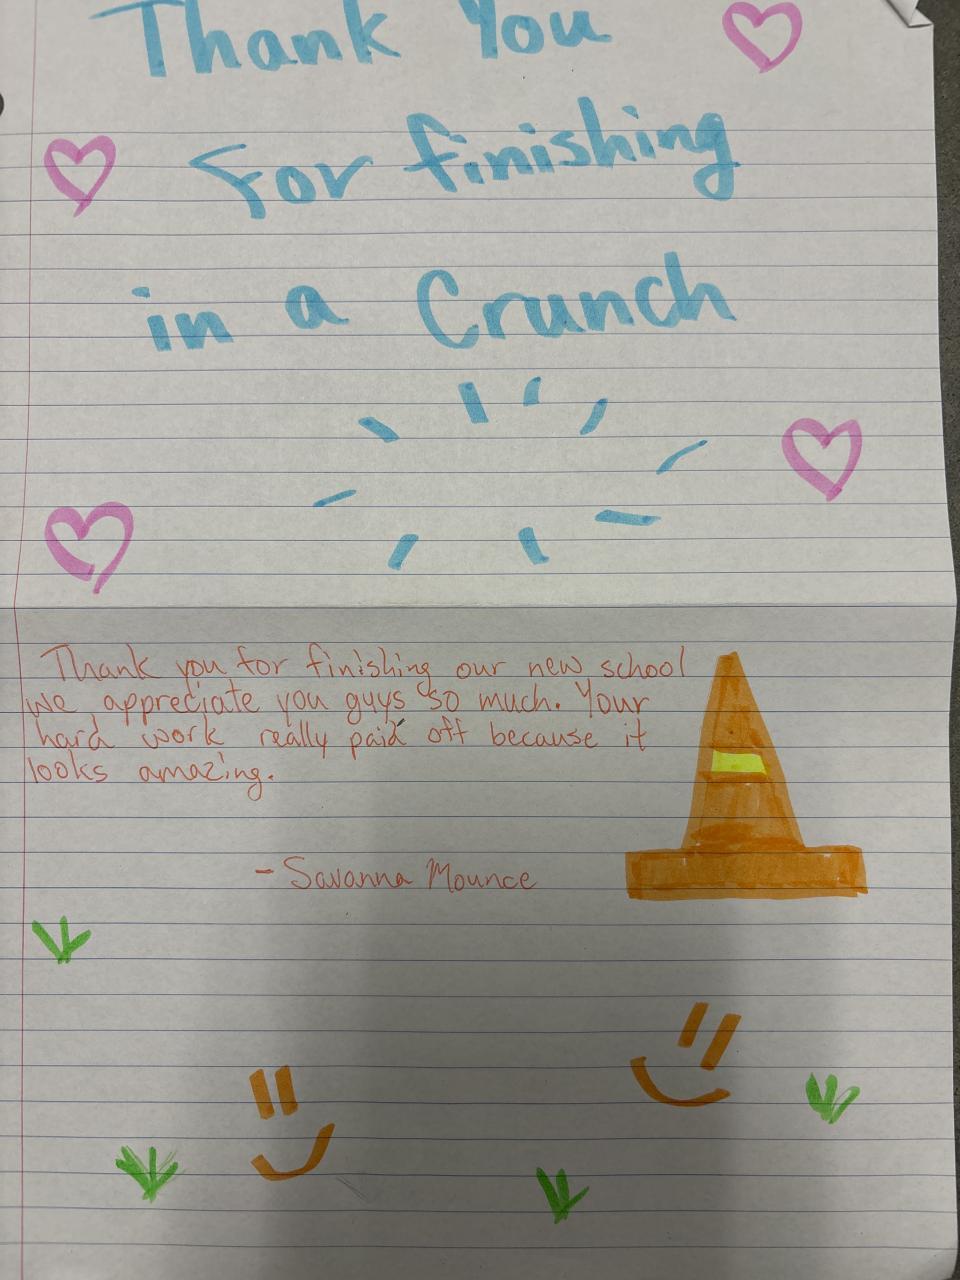 Thank You
For finishing
in a Crunch
Thank you for finishing our new school
we appreciate you guys so much. Your
hard work really paid off because it
looks amazing.
- Savanna Mounce